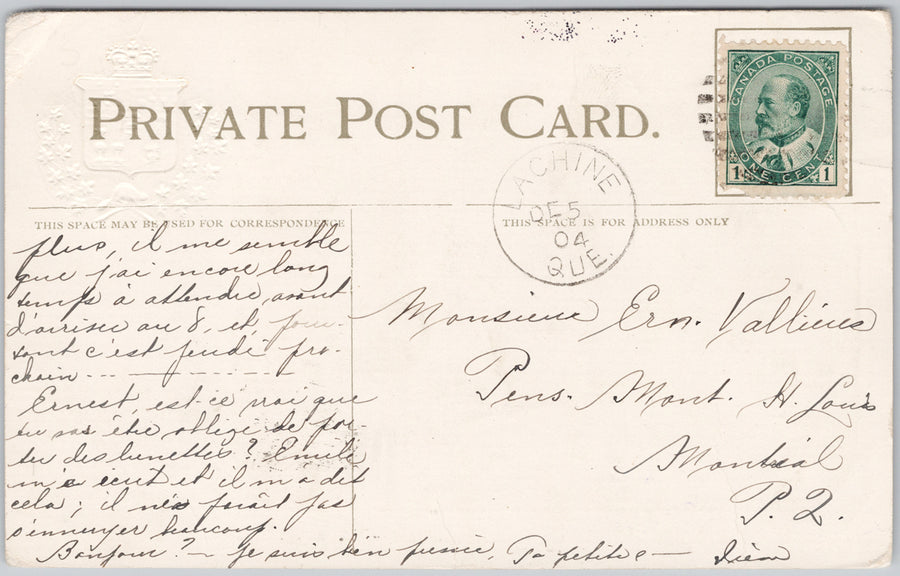 PRIVATE POST CARD.
CANADA POSTAGE
ONE CENT
1 1
LACHINE
DE 5
04
QUE.
THIS SPACE MAY BE USED FOR CORRESPONDENCE
THIS SPACE IS FOR ADDRESS ONLY
plus, il me semble
que j'ai encore long
temps à attendre, avant
d'arriser au 8, et, pour-
tant c'est jeudi pro-
chain
Ernest, est-ce vrai que
tu vas être obligé de por-
ter des lunettes? Emile
m'a écrit et il m'a dit
cela; il ne parait pas
s'ennuyer beaucoup.
Bonjour? — je suis bien
Ta petite
Monsieur Ern. Vallières
Pens. Mont. St. Louis
Montréal
P. Q.